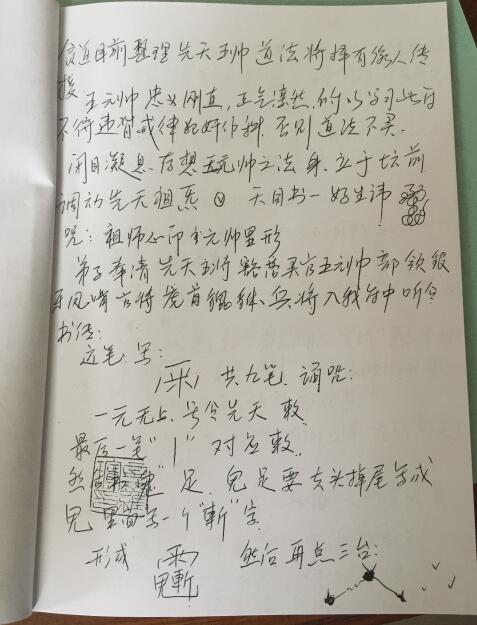 贫道目前整理先天王帅道法将择有缘人传
授 王元帅忠义刚直,正气凛然,所以学习此百
不得违背戒律犯奸作科,否则道法不灵.
闭目凝息,存想王元帅之法身,立于坛前
调动先天祖炁 天目书一好生讳
咒:祖师心印 王元帅显形
弟子奉请先天王将 灵官王元帅 部领银
牙风嘴 将虎首貔貅、兵将入我 中听令
书传:
边笔:写:
共九笔 诵咒:
一元无上、号令先天 敕
最后一笔"丨"对应敕
然后 足,鬼足要去头掉尾写成
儿 里面写一个"斬"字
形成 然后再点三台: